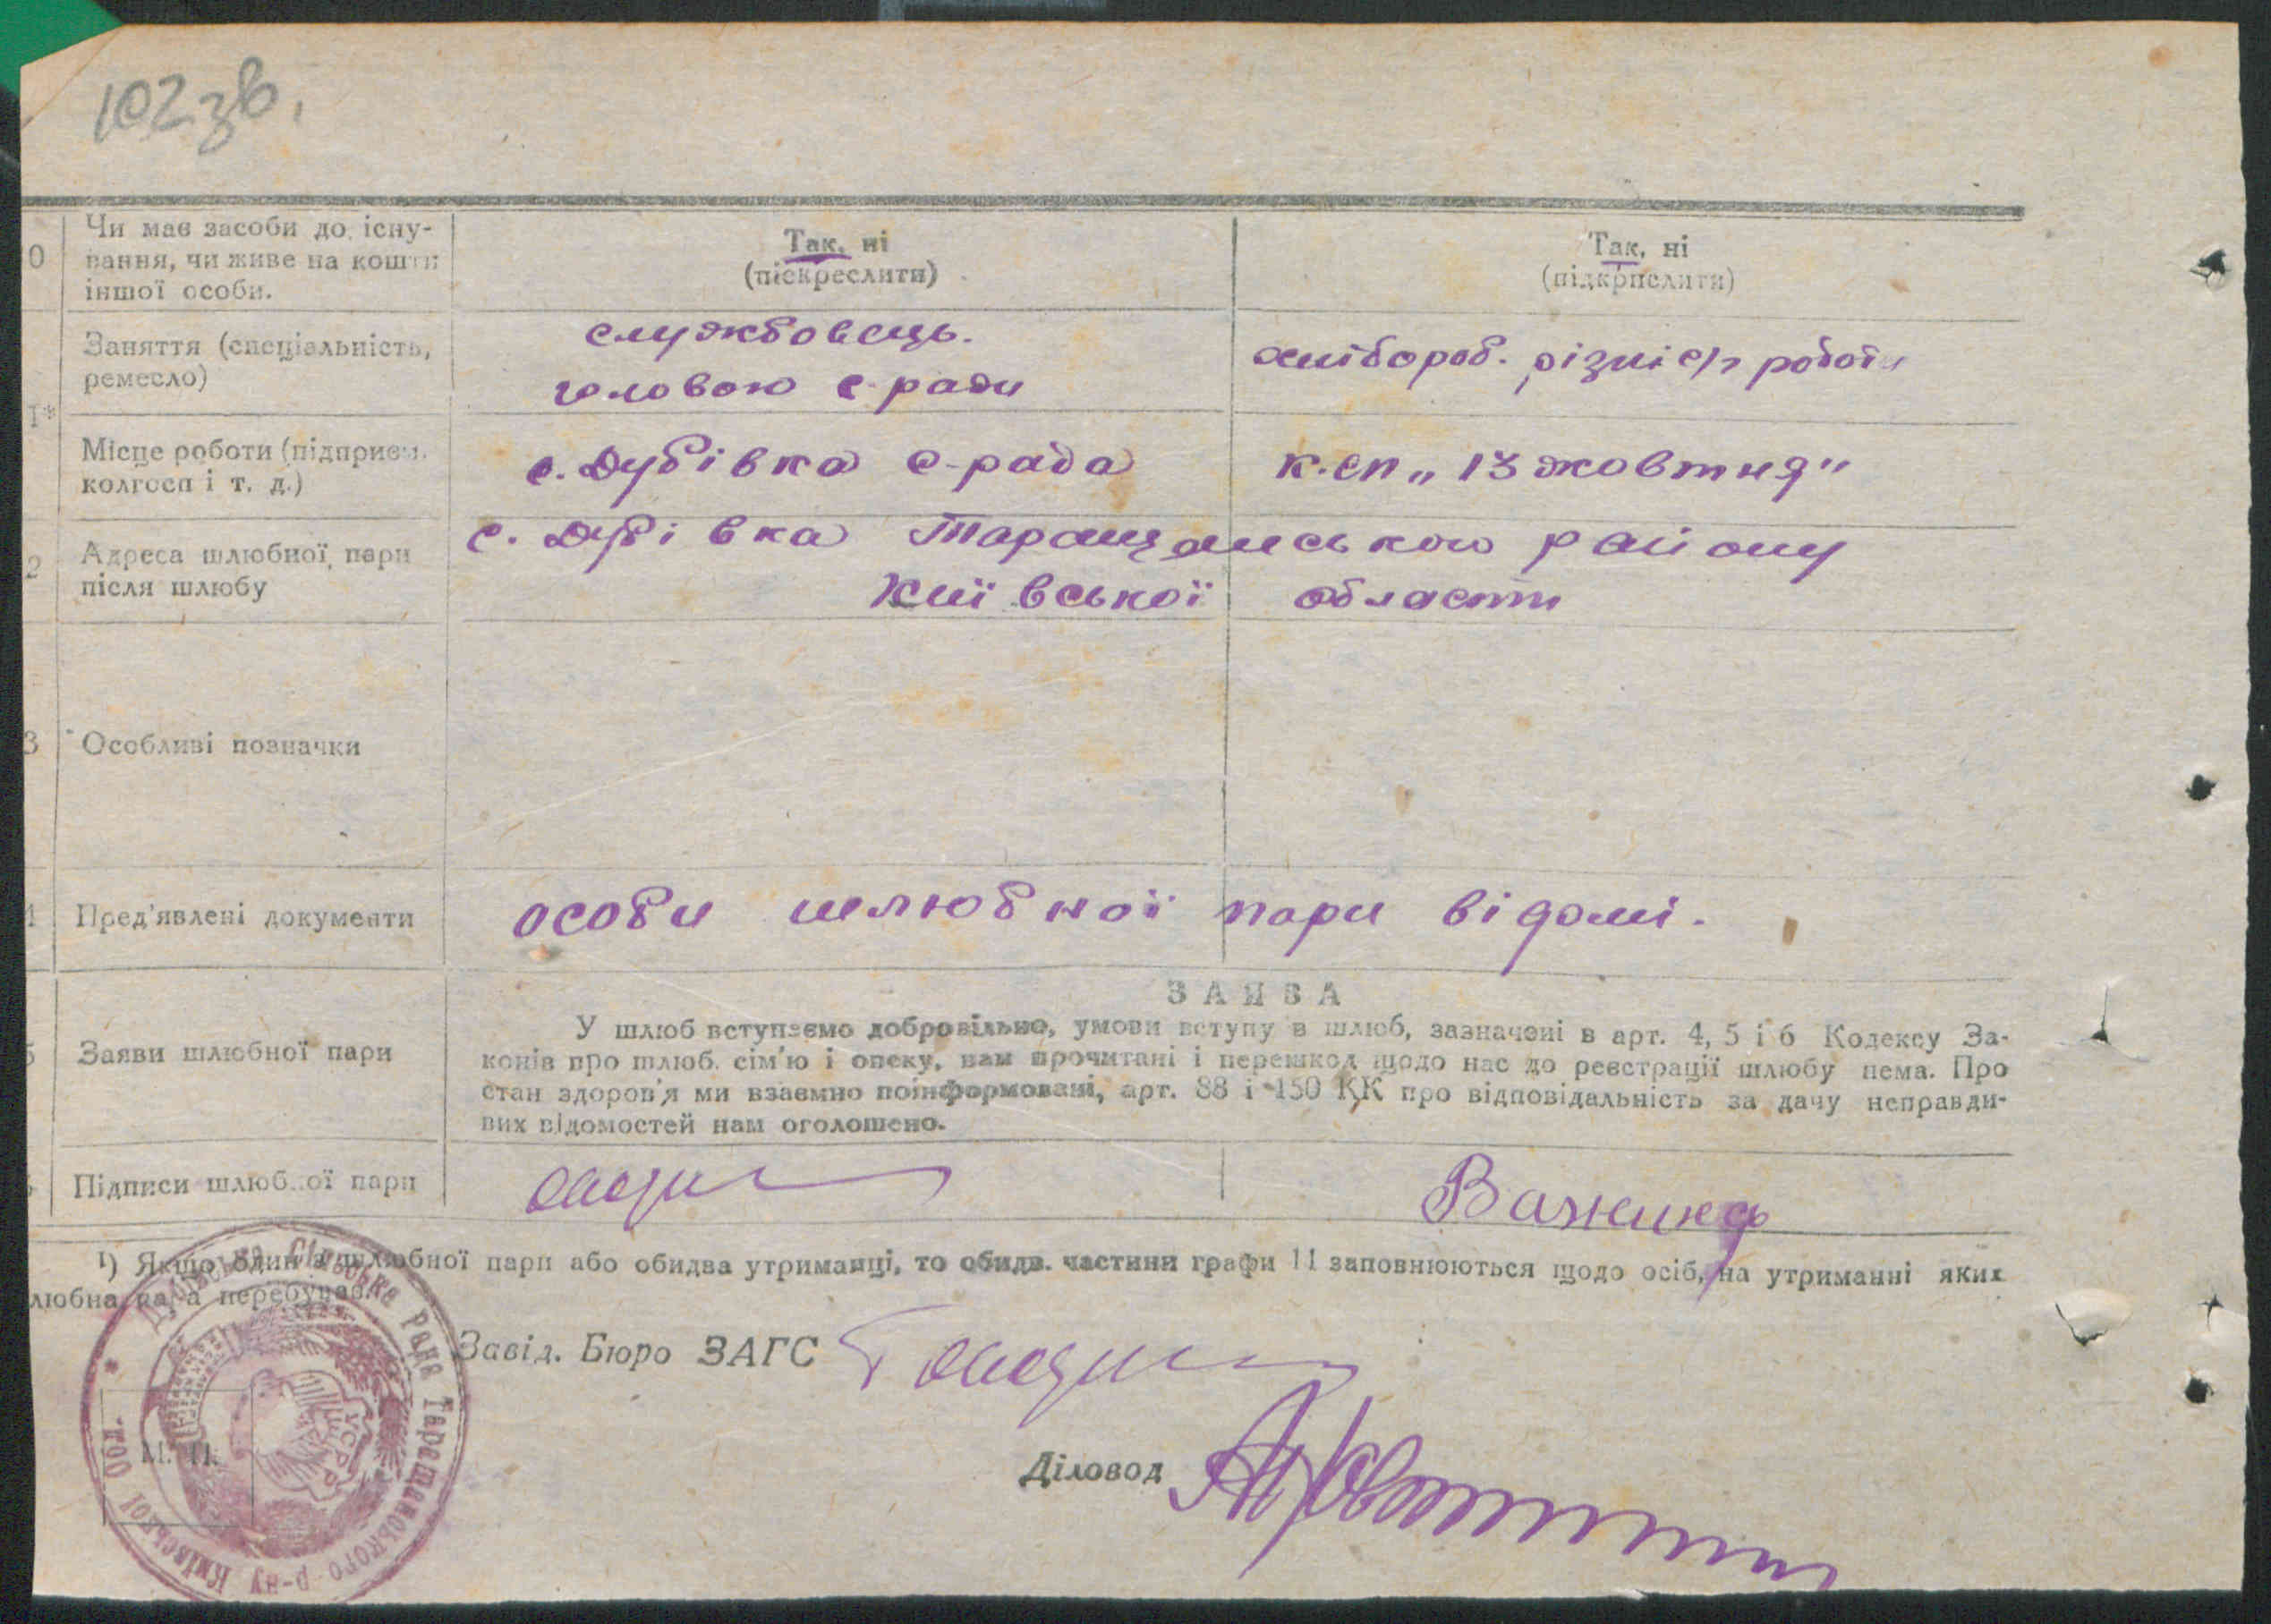 102 зв.
0
Чи має засоби до існу-
вання, чи живе на кошти
іншої особи.
Так, ні
(піскреслити)
Так, ні
(підкрпслити)
1*
Заняття (спеціальність,
ремесло)
службовець.
головою с-ради
хлібороб. різні с/г роботи
Місце роботи (підприєм.
колгосп і т. д.)
с. Дубівка с-рада
к.сп „13 жовтня"
2
Адреса шлюбної пари
після шлюбу
с. Дубівка Таращанського району
Київської області
3
Особливі позначки
Пред'явлені документи
особи шлюбної пари відомі.
Заяви шлюбної пари
ЗАЯВА
У шлюб вступаємо добровільно, умови вступу в шлюб, зазначені в арт. 4, 5 і 6 Кодексу За-
конів про шлюб, сім'ю і опеку, нам прочитані і перешкод щодо нас до реєстрації шлюбу нема. Про
стан здоров'я ми взаємно поінформовані, арт. 88 і 150 КК про відповідальність за дачу неправди-
вих відомостей нам оголошено.
Підписи шлюбної пари
¹) Якщо один з шлюбної пари або обидва утриманці, то обидв. частини графи 11 заповнюються щодо осіб, на утриманні яких
любна па а перебував.
Завід. Бюро ЗАГС
М. П.
Діловод
Сільська Рада Таращанського р-ну Київської Обл.
УСРР